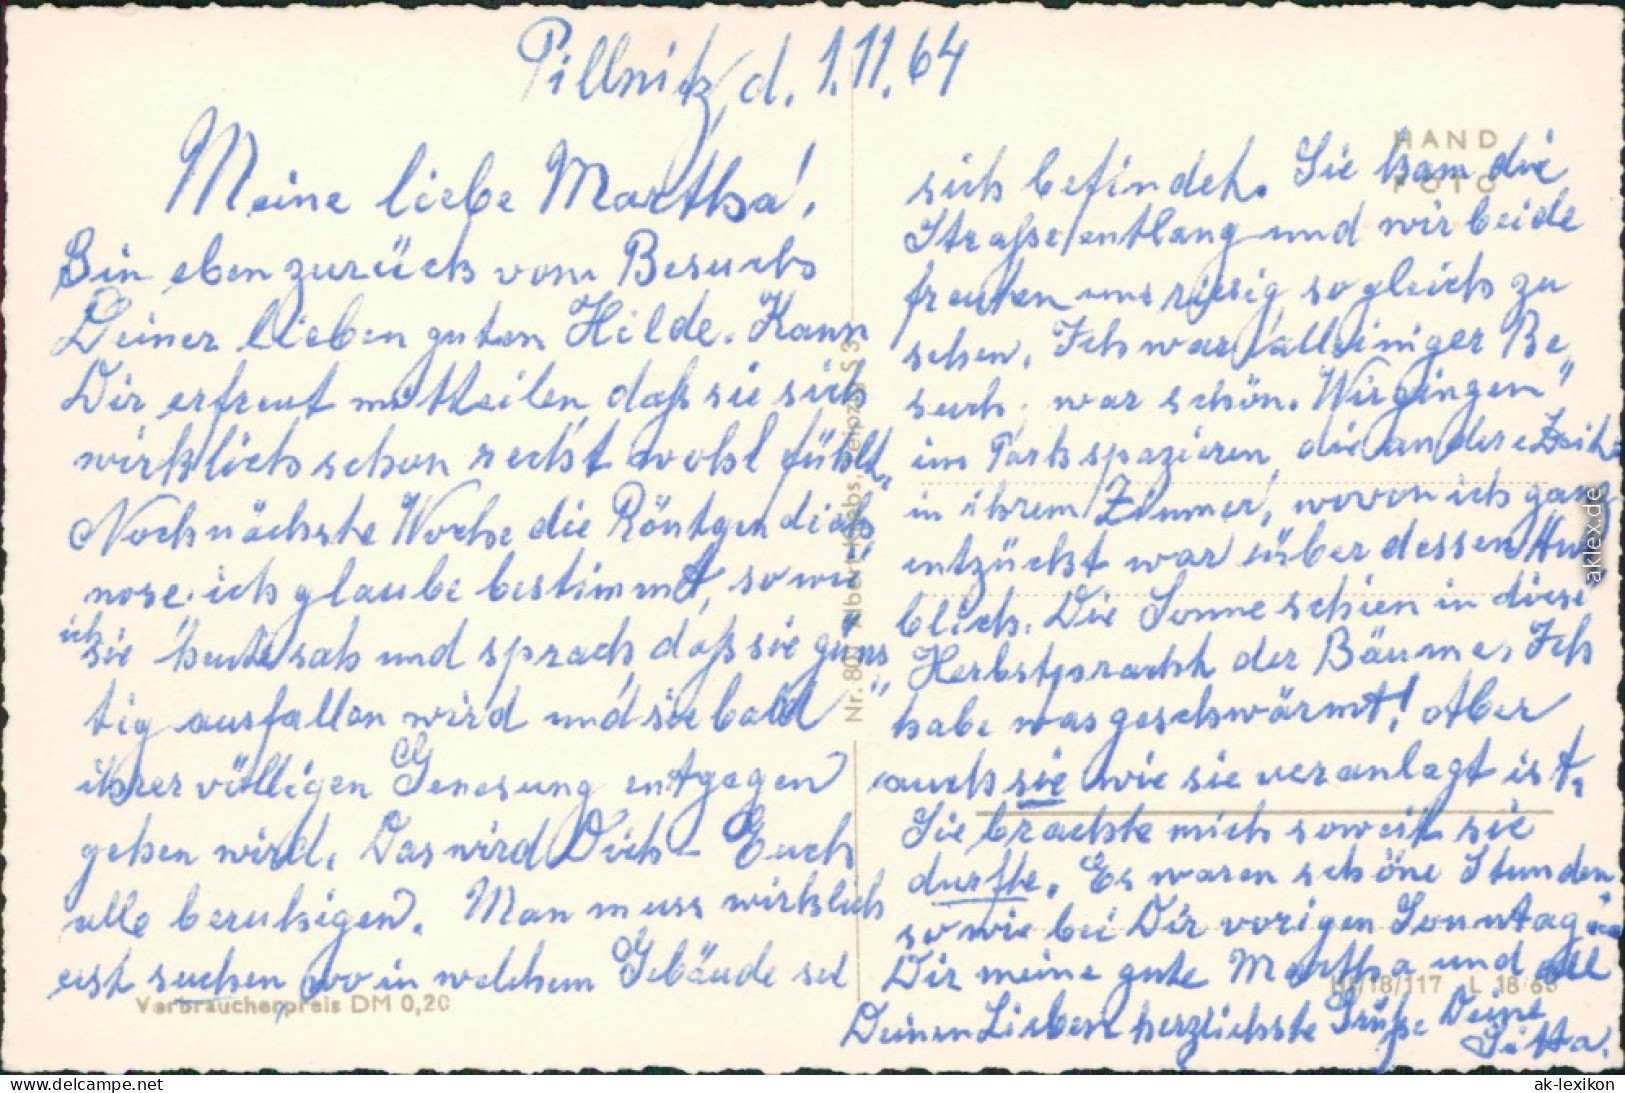 Pillnitz, d. 1.11.64
Meine liebe Martha!
Bin eben zurück vom Besuch
Deiner lieben guten Hilde. Kann
Dir erfreut mitteilen, daß sie sich
wirklich schon recht wohl fühlt.
Noch nächste Woche die Röntgendiag"
nose ich glaube bestimmt, so wie
ich
sie heute sah und sprach, daß sie güns"
tig ausfallen wird und sie bald
ihrer völligen Genesung entgegen
gehen wird. Das wird Dich - Euch
alle beruhigen. Man muss wirklich
erst suchen wo in welchem Gebäude sie
Verbraucherpreis DM 0,20
HAND
FOTO
sich befindet. Sie kam die
Straße entlang und wir beide
freuten uns riesig so gleich zu
sehen. Ich war alleiniger Be"
such. war schön. Wir gingen
im Park spazieren, die andere Zeit
in ihrem Zimmer, wovon ich ganz
entzückt war über dessen An
blick. Die Sonne schien in diese
Herbstpracht der Bäume. Ich
habe was geschwärmt! Aber
auch sie wie sie veranlagt ist.
Sie brachte mich soweit sie
durfte. Es waren schöne Stunden
so wie bei Dir vorigen Sonntag.
Dir meine gute Martha und all
Deinen Lieben herzlichste Grüße Deine
Jutta.
18/117 L 18/63
aklex.de
Verbraucherpreis - ak-lexikon.de
ak-lexikon